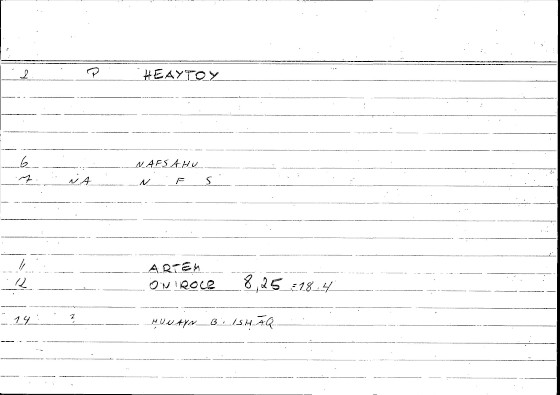 2 P HEAYTOY
6 NAFSAHU
7 NA N F S
11 ARTEM
12 ONIROCR 8,25 =18.4
14 ? HUNAYN B. ISHĀQ